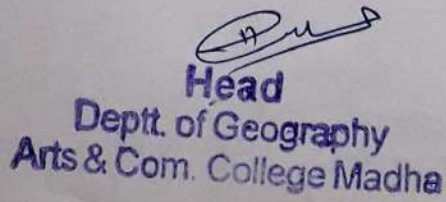 Head
Deptt. of Geography
Arts & Com. College Madha